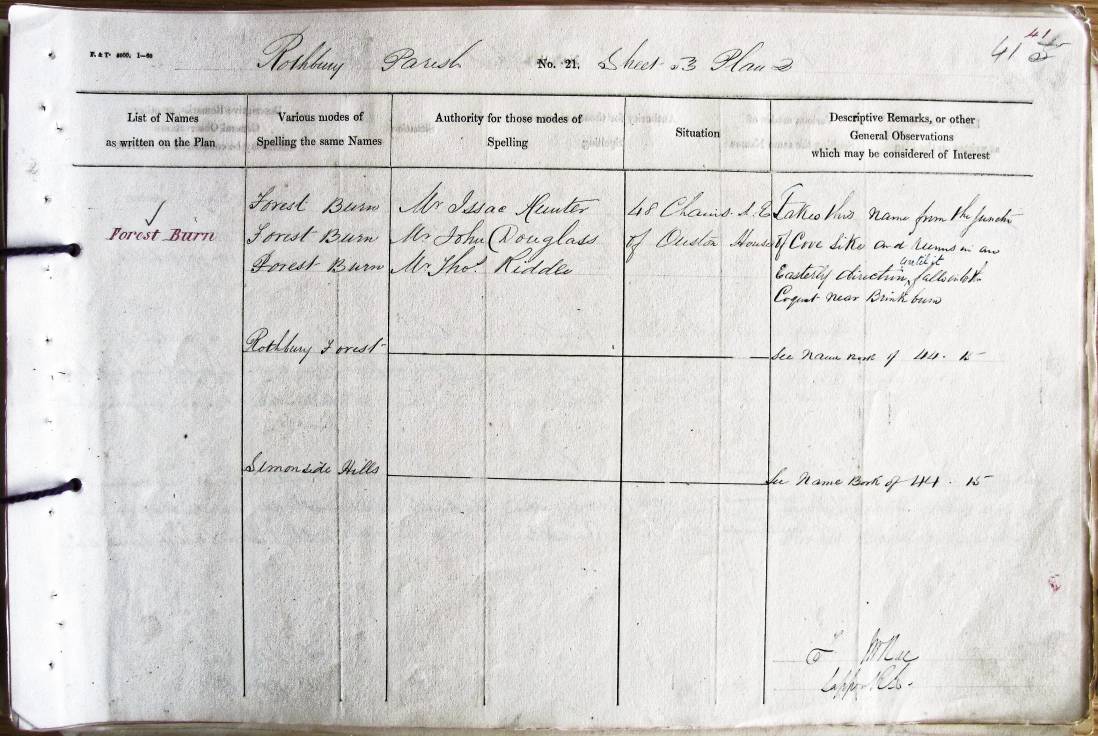 41
41
F. & T. 4000. 1-60
Rothbury Parish No. 21. Sheet 53 Plan 2
List of Names
as written on the Plan
Various modes of
Spelling the same Names
Authority for those modes of
Spelling
Situation
Descriptive Remarks, or other
General Observations
which may be considered of Interest
Forest Burn
Forest Burn
Forest Burn
Forest Burn
Mr. Issac Hunter
Mr. John Douglass
Mr. Thos. Riddle
48 Chains S.E.
of Ouston House
Takes this name from the Junctn
of Cove Sike and runns in an
untill it
Easterly direction falls into the
Coquet near Brinkburn
Rothbury Forest
See Name Book of 44. 15
Simonside Hills
See Name Book of 44. 15
McRae
Sapper R.E.